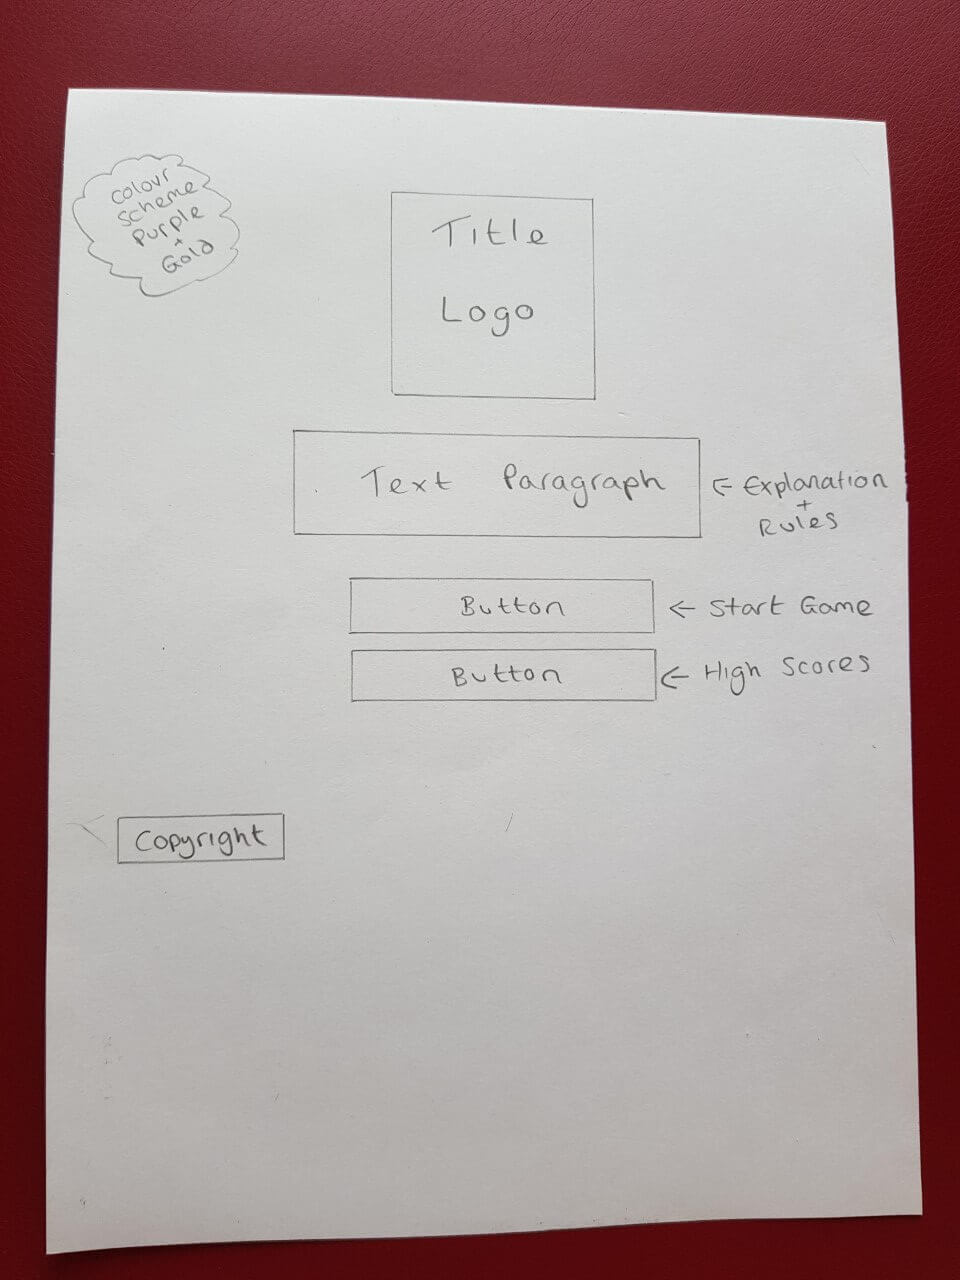 Colour
Scheme
Purple
+
Gold
Title
Logo
Text Paragraph
← Explanation
+
Rules
Button
← Start Game
Button
← High Scores
Copyright